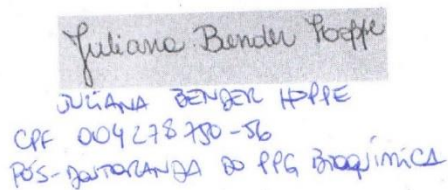 Juliana Bender Hoppe
JULIANA BENDER HOPPE
CPF 004278750-56
PÓS-DOUTORANDA DO PPG BIOQUÍMICA